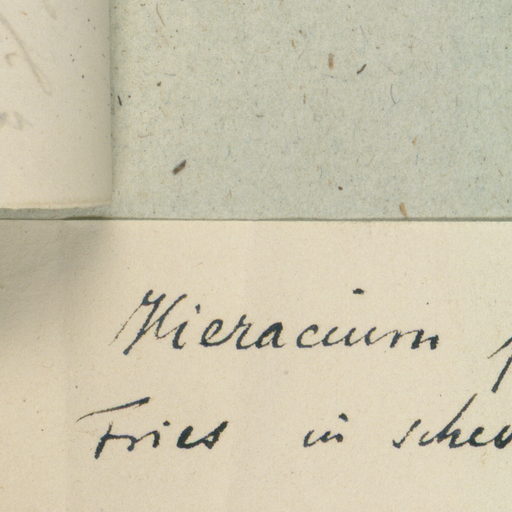 Hieracium
Fries in